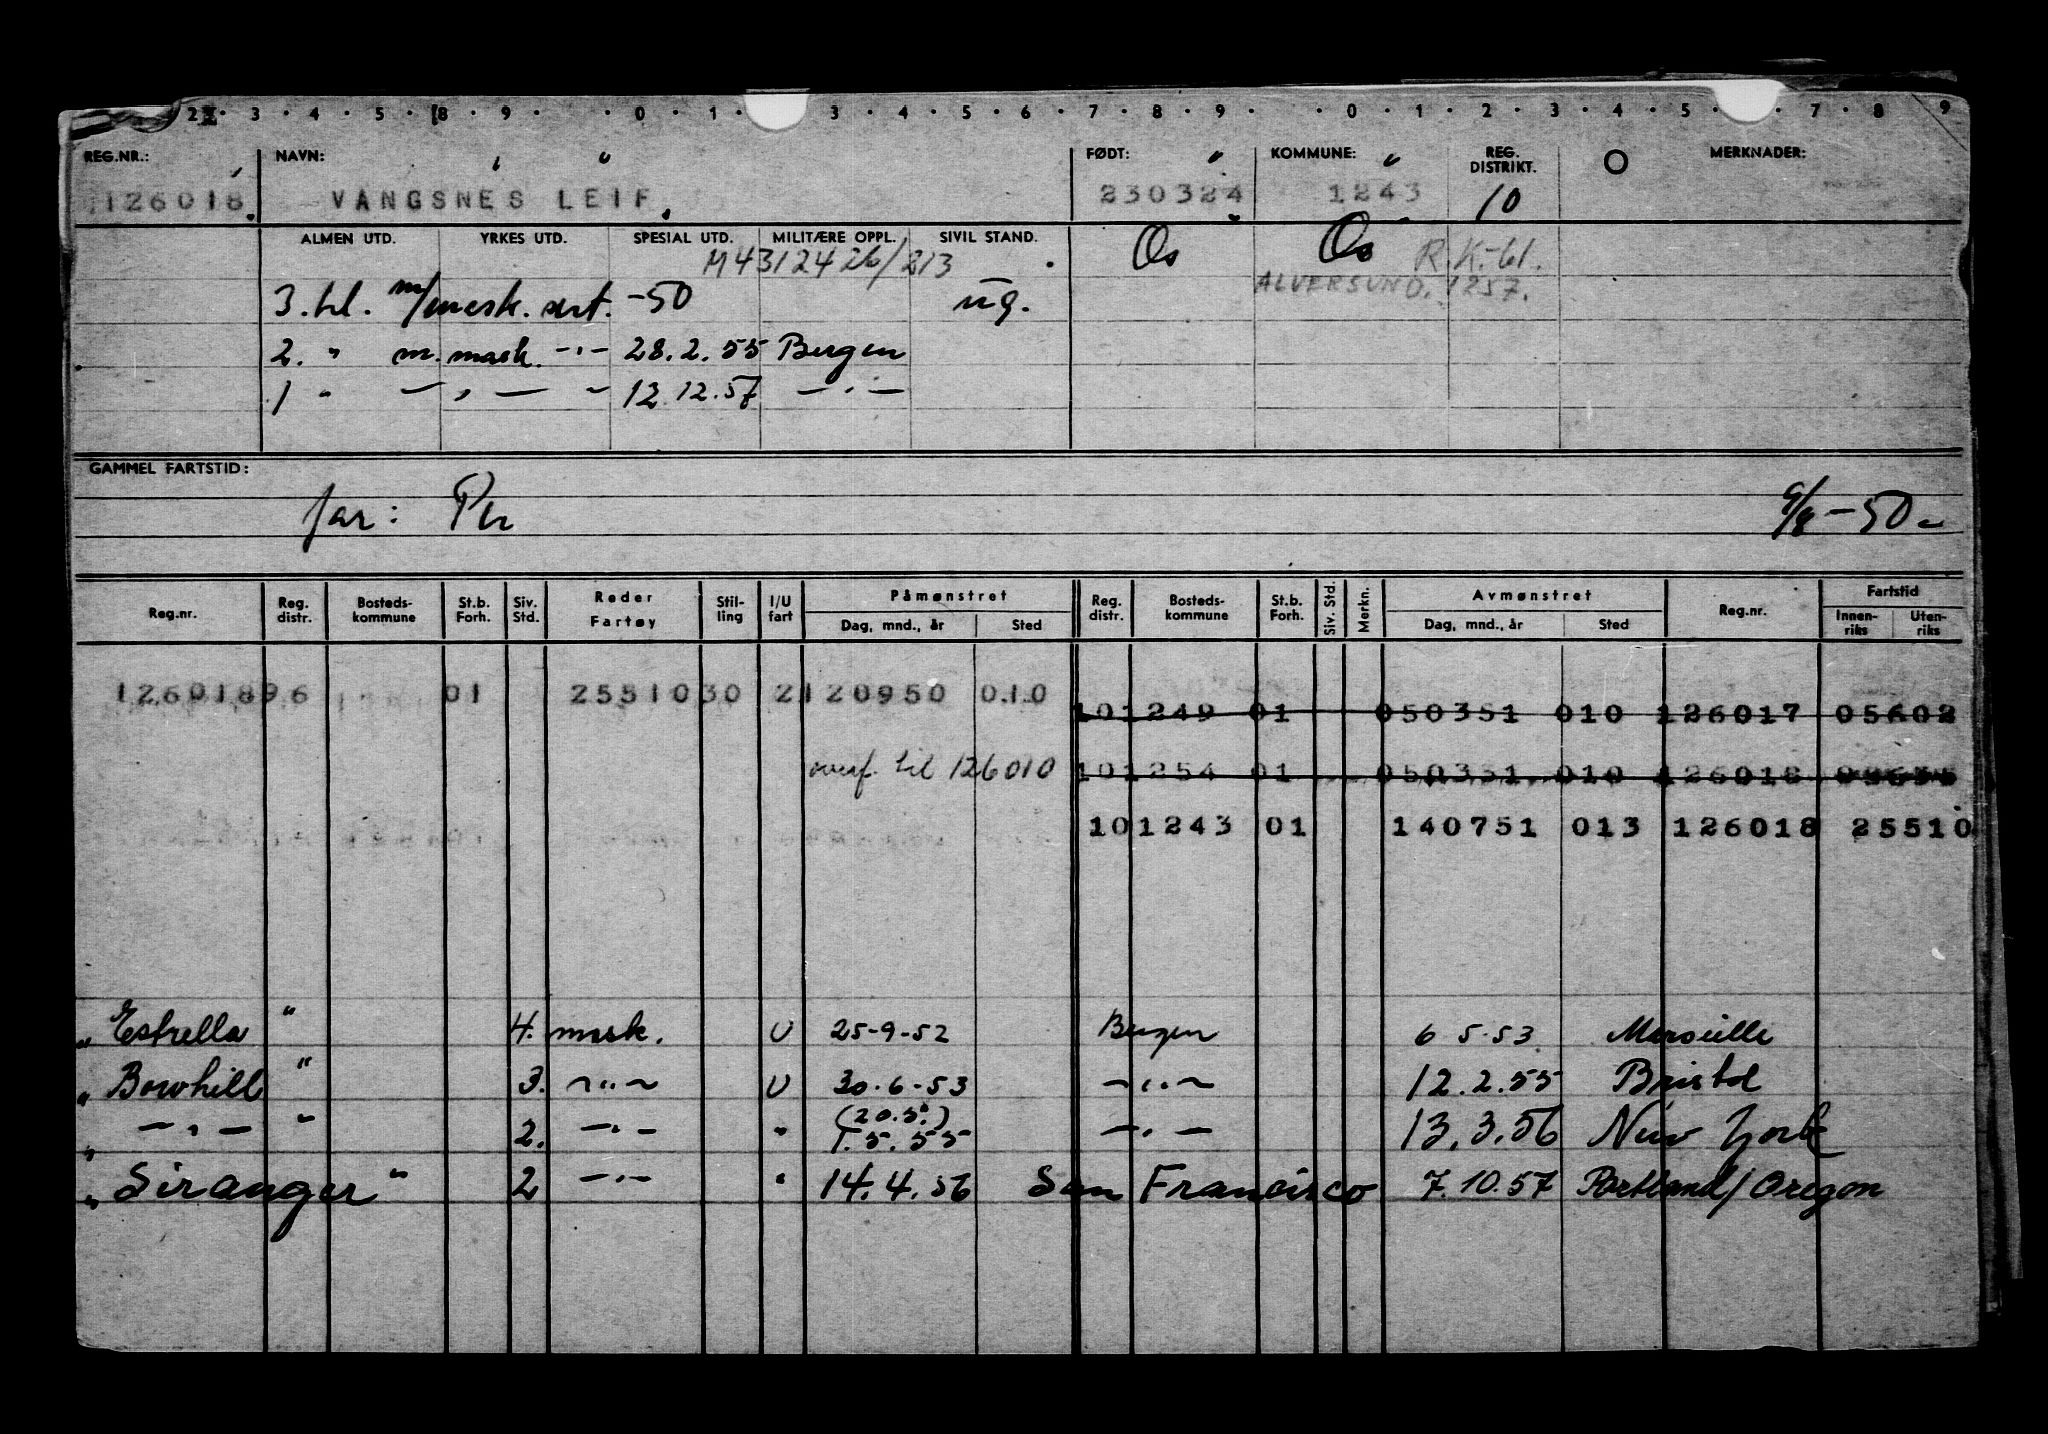 2 · 3 · 4 · 5 · 8 · 9 · · 0 · 1 · 3 · 4 · 5 · 6 · 7 · 8 · 9 · · 0 · 1 · 2 · 3 · 4 · 5 · 7 · 8 9
REG.NR.: NAVN: FØDT: KOMMUNE: REG. DISTRIKT. O MERKNADER:
126018 VANGSNES LEIF 230324 1243 10
ALMEN UTD. YRKES UTD. SPESIAL UTD. MILITÆRE OPPL. SIVIL STAND. Os Os R.K.-61.
M 43124 26/213 ALVERSUND. 1257.
3. kl. m/mask. sert. -50 ug.
2. " m. mask. -"- 28.2.55 Bergen
1 " - " - " 12.12.57 - " -
GAMMEL FARTSTID:
far: Per 9/8-50
Reg.nr. Reg. distr. Bosteds-kommune St.b. Forh. Siv. Std. Reder Fartøy Stil-ling I/U fart Påmønstret Dag, mnd., år Sted Reg. distr. Bosteds-kommune St.b. Forh. Siv. Std. Merkn. Avmønstret Dag, mnd., år Sted Reg.nr. Fartstid Innen-riks Uten-riks
126018 96 01 25510 30 2 120950 010
101249 01 050351 010 126017 05602
overf. til 126010 101254 01 050351 010 126018
101243 01 140751 013 126018 25510
" Estrella " 4. mask. U 25-9-52 Bergen 6 5.53 Marseille
" Bowhill " 3. -"- U 30.6-53 -"- 12.2.55 Bristol
(20.5.)
" -"- " 2. -"- " 1.5.55 -"- 13.3.56 New York
" Siranger " 2 -"- " 14.4.56 San Francisco 7.10.57 Portland/Oregon